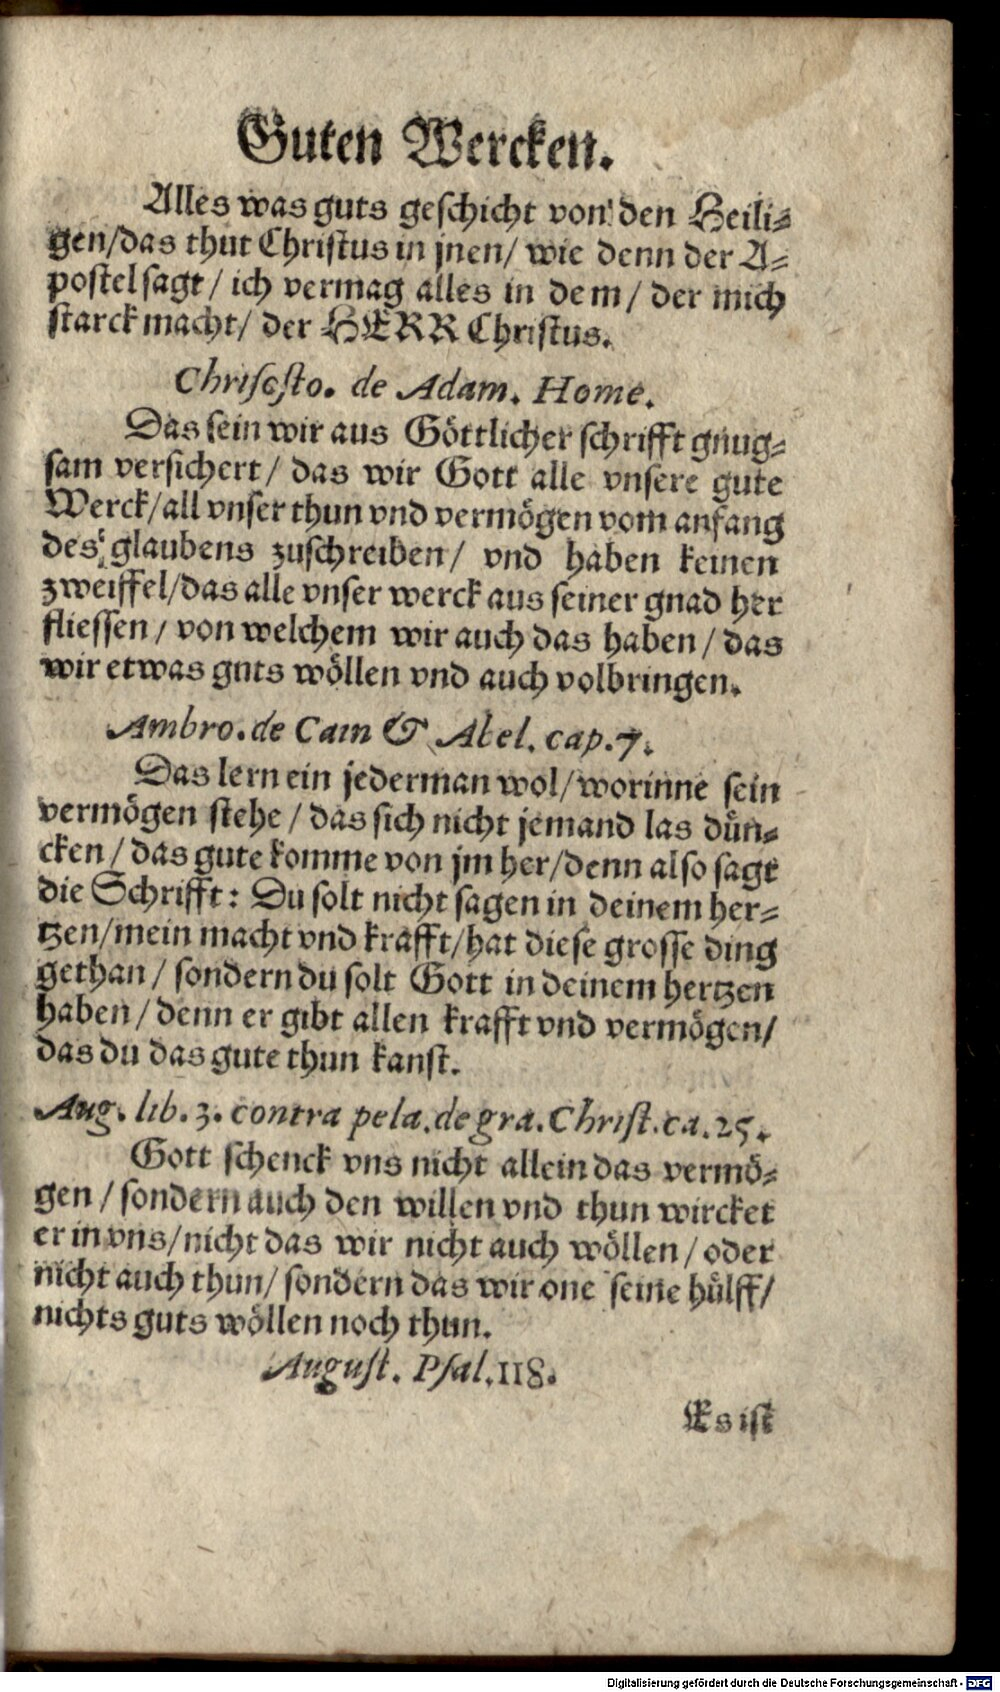 Guten Wercken.
Alles was guts geschicht von den Heili-
gen/das thut Christus in jnen/ wie denn der A-
postel sagt / ich vermag alles in dem / der mich
starck macht/ der HERR Christus.
Chrisosto. de Adam. Home.
Das sein wir aus Göttlicher schrifft gnug-
sam versichert / das wir Gott alle vnsere gute
Werck/all vnser thun vnd vermögen vom anfang
des glaubens zuschreiben / vnd haben keinen
zweiffel/das alle vnser werck aus seiner gnad her
fliessen / von welchem wir auch das haben / das
wir etwas guts wöllen vnd auch volbringen.
Ambro. de Cain & Abel. cap. 7.
Das lern ein jederman wol/worinne sein
vermögen stehe / das sich nicht jemand las dün-
cken / das gute komme von jm her/denn also sagt
die Schrifft: Du solt nicht sagen in deinem her-
tzen/mein macht vnd krafft/hat diese grosse ding
gethan / sondern du solt Gott in deinem hertzen
haben / denn er gibt allen krafft vnd vermögen/
das du das gute thun kanst.
Aug. lib. 3. contra pela. de gra. Christ. ca. 25.
Gott schenck vns nicht allein das vermö-
gen / sondern auch den willen vnd thun wircket
er in vns/nicht das wir nicht auch wöllen / oder
nicht auch thun/ sondern das wir one seine hülff/
nichts guts wöllen noch thun.
August. Psal. 118.
Es ist
Digitalisierung gefördert durch die Deutsche Forschungsgemeinschaft - DFG